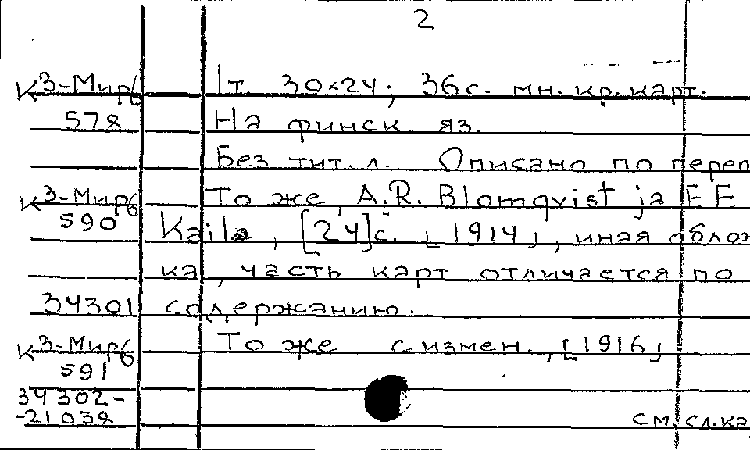 2
К 3-Мир6 1т. 30×24; 36с. мн. кр. карт.
578 На финск. яз.
Без тит. л. Описано по переп
К 3-Мир6 То же, A.R. Blomqvist ja E E
590 Kaila, [24]с. [1914], иная облож
ка, часть карт отличается по
34301 содержанию.
К 3-Мир6 То же с измен., [1916]
591
34302-
-21038 см. сл. ка